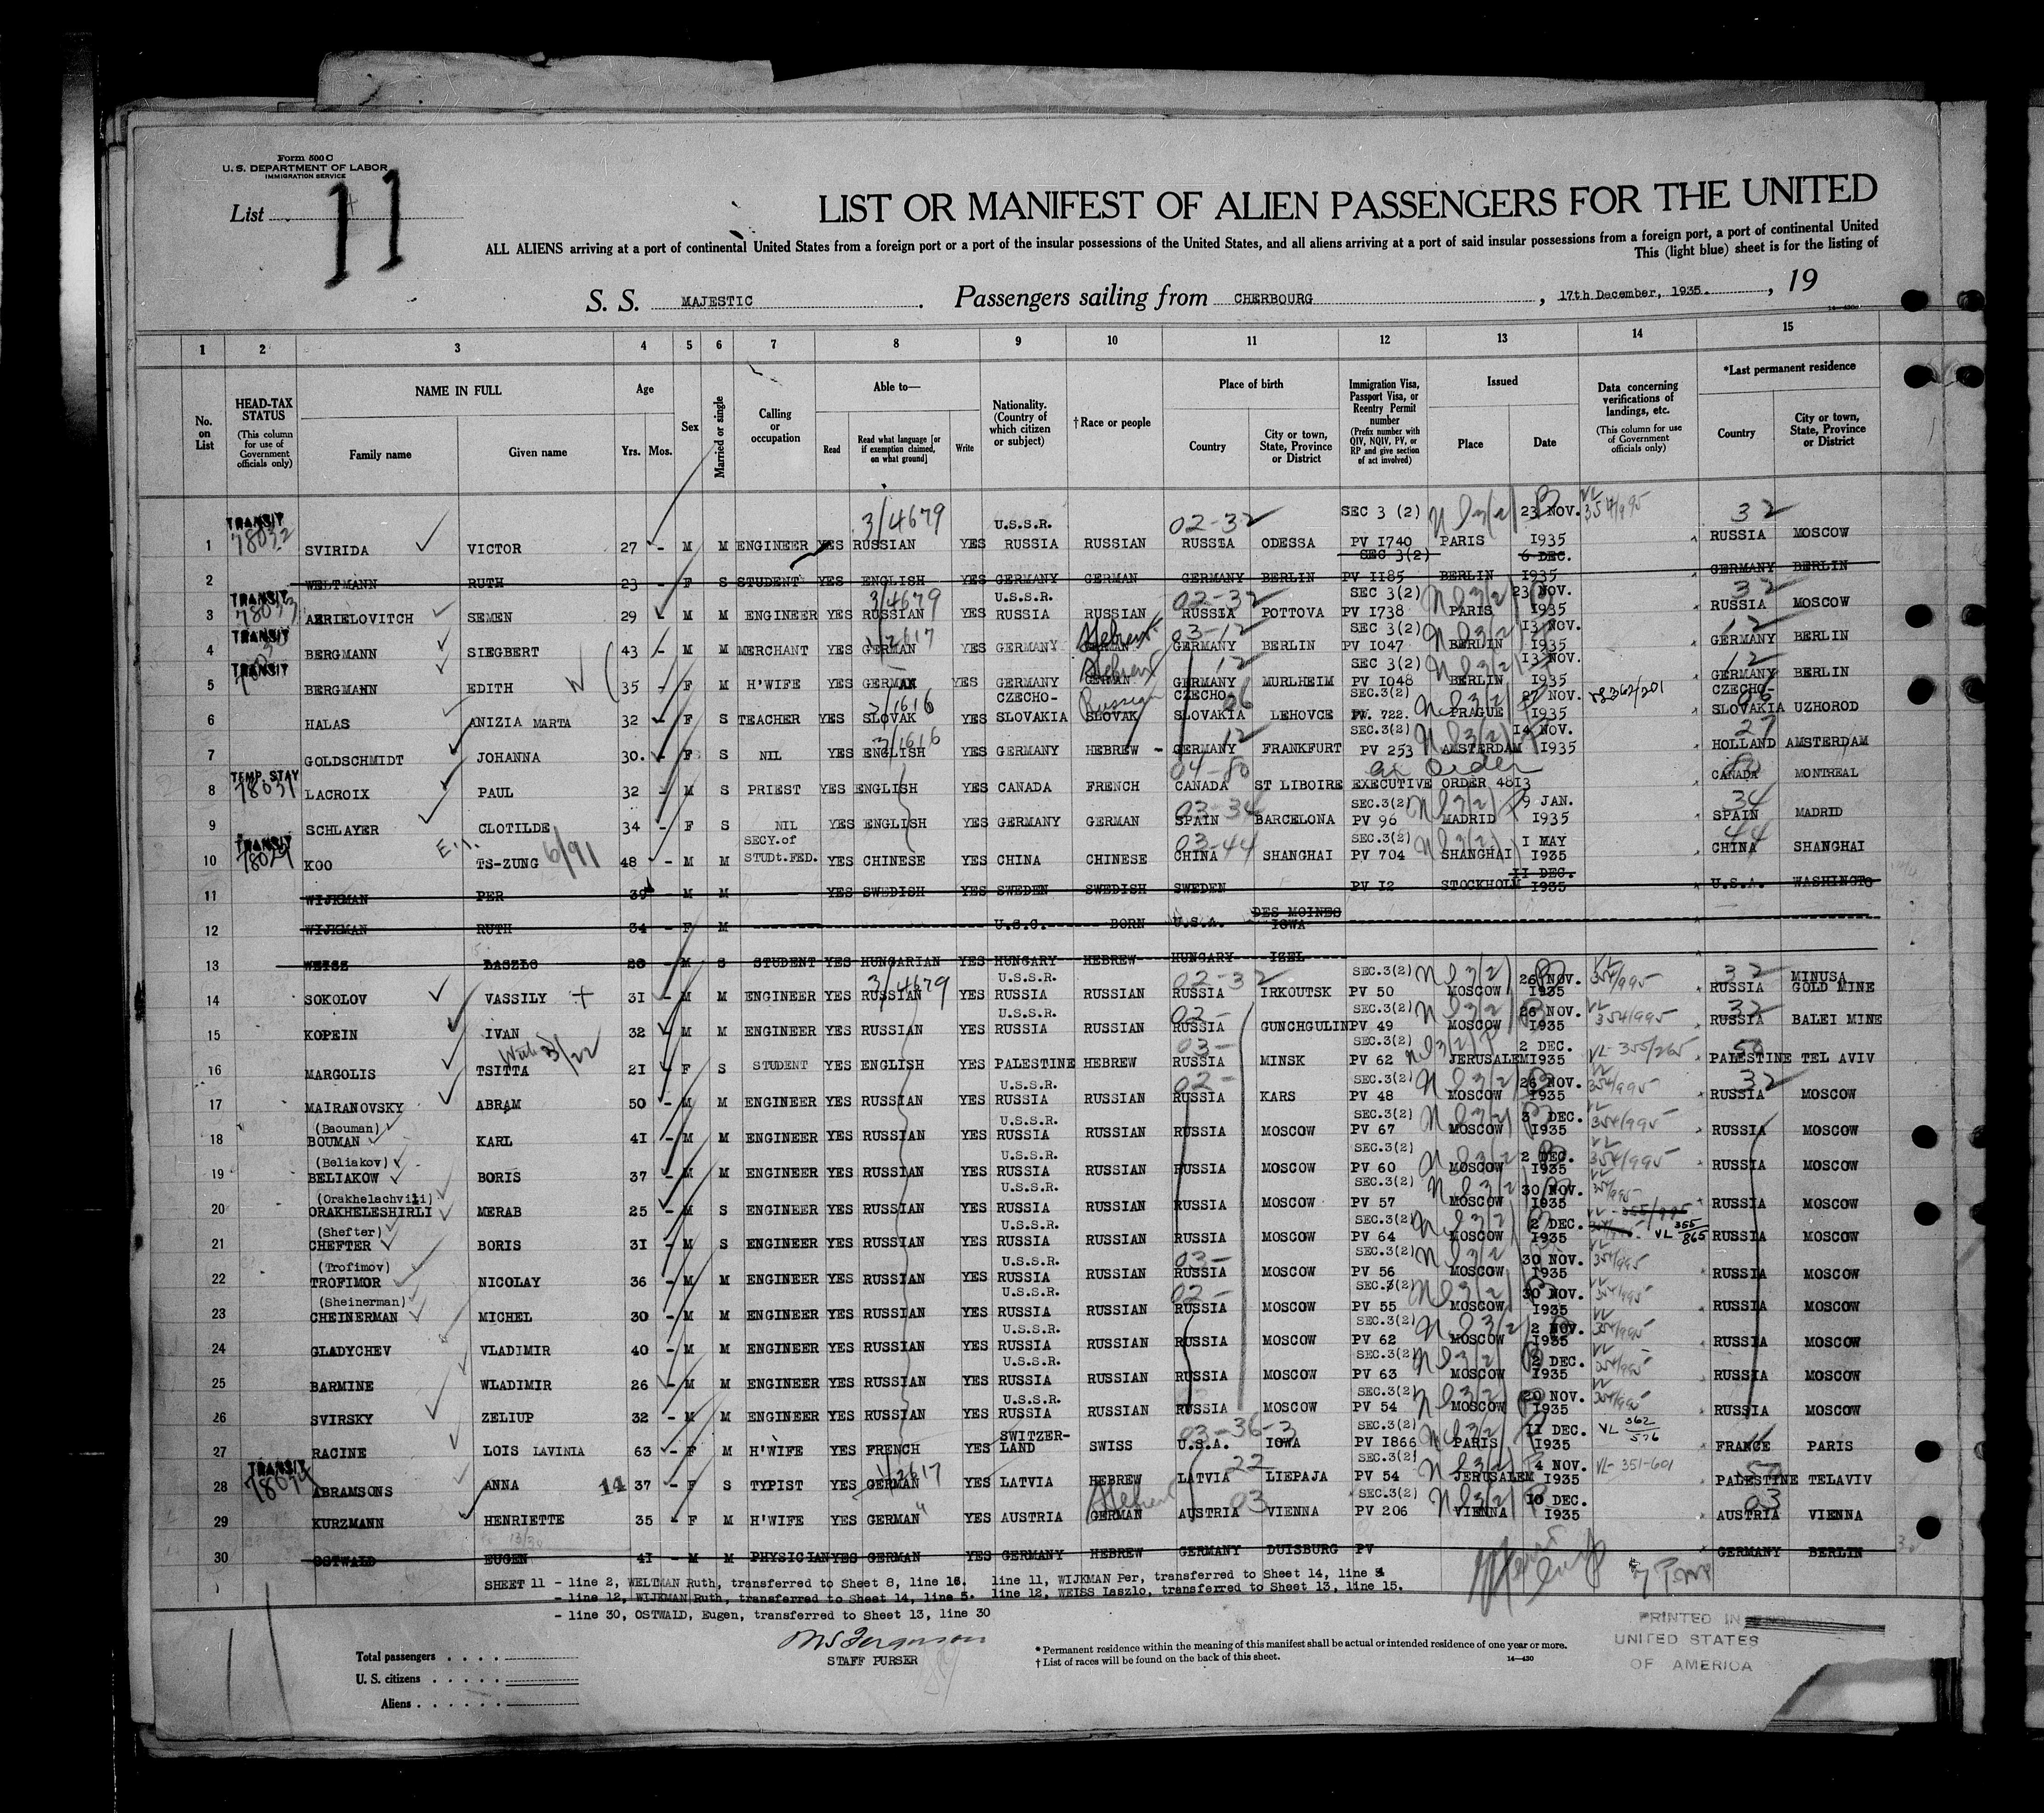 Form 500 C
U. S. DEPARTMENT OF LABOR
IMMIGRATION SERVICE
List 11
LIST OR MANIFEST OF ALIEN PASSENGERS FOR THE UNITED
ALL ALIENS arriving at a port of continental United States from a foreign port or a port of the insular possessions of the United States, and all aliens arriving at a port of said insular possessions from a foreign port, a port of continental United
This (light blue) sheet is for the listing of
S. S. MAJESTIC. Passengers sailing from CHERBOURG, 17th December, 1935., 19
1 2 3 4 5 6 7 8 9 10 11 12 13 14 15
No. on List
HEAD-TAX STATUS (This column for use of Government officials only)
NAME IN FULL Family name Given name
Age Yrs. Mos.
Sex
Married or single
Calling or occupation
Able to— Read Read what language [or if exemption claimed, on what ground] Write
Nationality. (Country of which citizen or subject)
†Race or people
Place of birth Country City or town, State, Province or District
Immigration Visa, Passport Visa, or Reentry Permit number (Prefix number with QIV, NQIV, PV, or RP and give section of act involved)
Issued Place Date
Data concerning verifications of landings, etc. (This column for use of Government officials only)
*Last permanent residence Country City or town, State, Province or District
TRANSIT 78032 3/4679 U.S.S.R. 02-32 SEC 3 (2) 23 NOV. VL 354/995 32
1 SVIRIDA VICTOR 27 - M M ENGINEER YES RUSSIAN YES RUSSIA RUSSIAN RUSSIA ODESSA PV 1740 PARIS 1935 RUSSIA MOSCOW
SEC 3(2) 6 DEC.
2 WELTMANN RUTH 23 - F S STUDENT YES ENGLISH YES GERMANY GERMAN GERMANY BERLIN PV 1185 BERLIN 1935 GERMANY BERLIN
TRANSIT 78033 3/4679 U.S.S.R. 02-32 SEC 3(2) 23 NOV. 32
3 ABRIELOVITCH SEMEN 29 M M ENGINEER YES RUSSIAN YES RUSSIA RUSSIAN RUSSIA POTTOVA PV 1738 PARIS 1935 RUSSIA MOSCOW
TRANSIT 2617 Hebrew 03-12 SEC 3(2) 13 NOV. 12
4 BERGMANN SIEGBERT 43 - M M MERCHANT YES GERMAN YES GERMANY GERMAN GERMANY BERLIN PV 1047 BERLIN 1935 GERMANY BERLIN
TRANSIT Hebrew 12 SEC 3(2) 13 NOV. 12
5 BERGMANN EDITH 35 - F M H'WIFE YES GERMAN YES GERMANY GERMAN GERMANY MURLHEIM PV 1048 BERLIN 1935 GERMANY BERLIN
3/1616 CZECHO- Russian CZECHO- 06 SEC.3(2) 27 NOV. VL 362/201 CZECHO- 06
6 HALAS ANIZIA MARTA 32 - F S TEACHER YES SLOVAK YES SLOVAKIA SLOVAK SLOVAKIA LEHOVCE PV. 722. PRAGUE 1935 SLOVAKIA UZHOROD
3/1616 12 SEC.3(2) 14 NOV. 27
7 GOLDSCHMIDT JOHANNA 30. - F S NIL YES ENGLISH YES GERMANY HEBREW - GERMANY FRANKFURT PV 253 AMSTERDAM 1935 HOLLAND AMSTERDAM
TEMP. STAY 78031 04-80 Ex Order 80
8 LACROIX PAUL 32 - M S PRIEST YES ENGLISH YES CANADA FRENCH CANADA ST LIBOIRE EXECUTIVE ORDER 4813 CANADA MONTREAL
03-34 SEC.3(2) 9 JAN. 34
9 SCHLAYER CLOTILDE 34 - F S NIL YES ENGLISH YES GERMANY GERMAN SPAIN BARCELONA PV 96 MADRID 1935 SPAIN MADRID
TRANSIT 78029 6/91 SECY.of 03-44 SEC.3(2) 1 MAY 44
10 KOO TS-ZUNG 48 - M M STUDt.FED. YES CHINESE YES CHINA CHINESE CHINA SHANGHAI PV 704 SHANGHAI 1935 CHINA SHANGHAI
11 DEC.
11 WIJKMAN PER 39 M M YES SWEDISH YES SWEDEN SWEDISH SWEDEN PV 12 STOCKHOLM 1935 U.S.A. WASHINGTO
DES MOINES
12 WIJKMAN RUTH 34 - F M U.S.C. BORN U.S.A. IOWA
13 WEISZ LASZLO 20 M S STUDENT YES HUNGARIAN YES HUNGARY HEBREW HUNGARY IZEL
3/4679 U.S.S.R. 02-32 SEC.3(2) 26 NOV. VL 354/995 32 MINUSA
14 SOKOLOV VASSILY 31 - M M ENGINEER YES RUSSIAN YES RUSSIA RUSSIAN RUSSIA IRKOUTSK PV 50 MOSCOW 1935 RUSSIA GOLD MINE
U.S.S.R. 02- SEC.3(2) 26 NOV. VL 354/995 32
15 KOPEIN IVAN 32 M M ENGINEER YES RUSSIAN YES RUSSIA RUSSIAN RUSSIA GUNCHGULIN PV 49 MOSCOW 1935 RUSSIA BALEI MINE
3/22 03- SEC.3(2) 2 DEC. VL-355/265 50
16 MARGOLIS TSITTA 21 - F S STUDENT YES ENGLISH YES PALESTINE HEBREW RUSSIA MINSK PV 62 JERUSALEM 1935 PALESTINE TEL AVIV
U.S.S.R. 02- SEC.3(2) 26 NOV. VL 354/995 32
17 MAIRANOVSKY ABRAM 50 - M M ENGINEER YES RUSSIAN YES RUSSIA RUSSIAN RUSSIA KARS PV 48 MOSCOW 1935 RUSSIA MOSCOW
(Baouman) U.S.S.R. SEC.3(2) 3 DEC. VL 354/995
18 BOUMAN KARL 41 - M M ENGINEER YES RUSSIAN YES RUSSIA RUSSIAN RUSSIA MOSCOW PV 67 MOSCOW 1935 RUSSIA MOSCOW
(Beliakov) U.S.S.R. SEC.3(2) 2 DEC. VL 354/995
19 BELIAKOW BORIS 37 - M M ENGINEER YES RUSSIAN YES RUSSIA RUSSIAN RUSSIA MOSCOW PV 60 MOSCOW 1935 RUSSIA MOSCOW
(Orakhelachvili) U.S.S.R. SEC.3(2) 30 NOV. VL 354/995
20 ORAKHELESHIRLI MERAB 25 - M S ENGINEER YES RUSSIAN YES RUSSIA RUSSIAN RUSSIA MOSCOW PV 57 MOSCOW 1935 RUSSIA MOSCOW
(Shefter) U.S.S.R. SEC.3(2) 2 DEC. VL 355/865
21 CHEFTER BORIS 31 - M S ENGINEER YES RUSSIAN YES RUSSIA RUSSIAN RUSSIA MOSCOW PV 64 MOSCOW 1935 RUSSIA MOSCOW
(Trofimov) U.S.S.R. 03- SEC.3(2) 30 NOV. VL 354/995
22 TROFIMOR NICOLAY 36 - M M ENGINEER YES RUSSIAN YES RUSSIA RUSSIAN RUSSIA MOSCOW PV 56 MOSCOW 1935 RUSSIA MOSCOW
(Sheinerman) U.S.S.R. 02- SEC.3(2) 30 NOV. VL 354/995
23 CHEINERMAN MICHEL 30 - M M ENGINEER YES RUSSIAN YES RUSSIA RUSSIAN RUSSIA MOSCOW PV 55 MOSCOW 1935 RUSSIA MOSCOW
U.S.S.R. SEC.3(2) 2 NOV. VL 354/995
24 GLADYCHEV VLADIMIR 40 - M M ENGINEER YES RUSSIAN YES RUSSIA RUSSIAN RUSSIA MOSCOW PV 62 MOSCOW 1935 RUSSIA MOSCOW
U.S.S.R. SEC.3(2) 2 DEC. VL 354/995
25 BARMINE WLADIMIR 26 - M M ENGINEER YES RUSSIAN YES RUSSIA RUSSIAN RUSSIA MOSCOW PV 63 MOSCOW 1935 RUSSIA MOSCOW
U.S.S.R. SEC.3(2) 20 NOV. VL 354/995
26 SVIRSKY ZELIUP 32 - M M ENGINEER YES RUSSIAN YES RUSSIA RUSSIAN RUSSIA MOSCOW PV 54 MOSCOW 1935 RUSSIA MOSCOW
SWITZER- 03-36-3 SEC.3(2) 11 DEC. VL 362/576
27 RACINE LOIS LAVINIA 63 - F M H'WIFE YES FRENCH YES LAND SWISS U.S.A. IOWA PV 1866 PARIS 1935 FRANCE PARIS
TRANSIT 2617 22 SEC.3(2) 4 NOV. VL-351-601 50
28 ABRAMSONS ANNA 14 37 - F S TYPIST YES GERMAN YES LATVIA HEBREW LATVIA LIEPAJA PV 54 JERUSALEM 1935 PALESTINE TELAVIV
Hebrew 03 SEC.3(2) 10 DEC. 03
29 KURZMANN HENRIETTE 35 - F M H'WIFE YES GERMAN YES AUSTRIA GERMAN AUSTRIA VIENNA PV 206 VIENNA 1935 AUSTRIA VIENNA
30 OSTWALD EUGEN 41 - M M PHYSICIAN YES GERMAN YES GERMANY HEBREW GERMANY DUISBURG PV GERMANY BERLIN
SHEET 11 - line 2, WELTMAN Ruth, transferred to Sheet 8, line 16. line 11, WIJKMAN Per, transferred to Sheet 14, line 4
- line 12, WIJKMAN Ruth, transferred to Sheet 14, line 5. line 12, WEISS Laszlo, transferred to Sheet 13, line 15.
- line 30, OSTWALD, Eugen, transferred to Sheet 13, line 30
Total passengers
U. S. citizens
Aliens
STAFF PURSER
* Permanent residence within the meaning of this manifest shall be actual or intended residence of one year or more.
† List of races will be found on the back of this sheet.
14—430
PRINTED IN
UNITED STATES
OF AMERICA